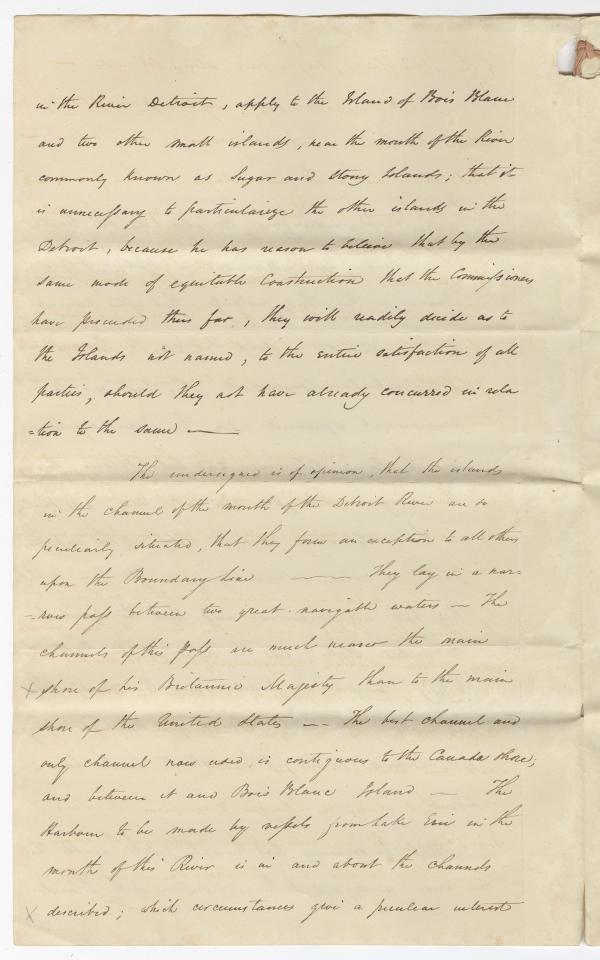 in the River Detroit, apply to the Island of Bois Blanc
and two other small islands, near the mouth of the River
commonly known as Sugar and Stony Islands; that it
is unnecessary to particularize the other islands in the
Detroit, because he has reason to believe that by the
same mode of equitable Construction that the Commissioners
have proceeded thus far, they will readily decide as to
the Islands not named, to the entire satisfaction of all
parties, should they not have already concurred in rela
=tion to the same —
The undersigned is of opinion, that the islands
in the channel of the mouth of the Detroit River are so
peculiarly situated, that they form an exception to all others
upon the Boundary line — — They lay in a nar=
=row pass between two great navigable waters — The
channels of this Pass are much nearer the main
x shore of his Britannic Majesty than to the main
shore of the United States — The best channel and
only channel now used is contiguous to the Canada shore;
and between it and Bois Blanc Island — The
Harbour to be made by vessels from Lake Erie in the
mouth of this River is in and about the channels
x described; which circumstances give a peculiar interest